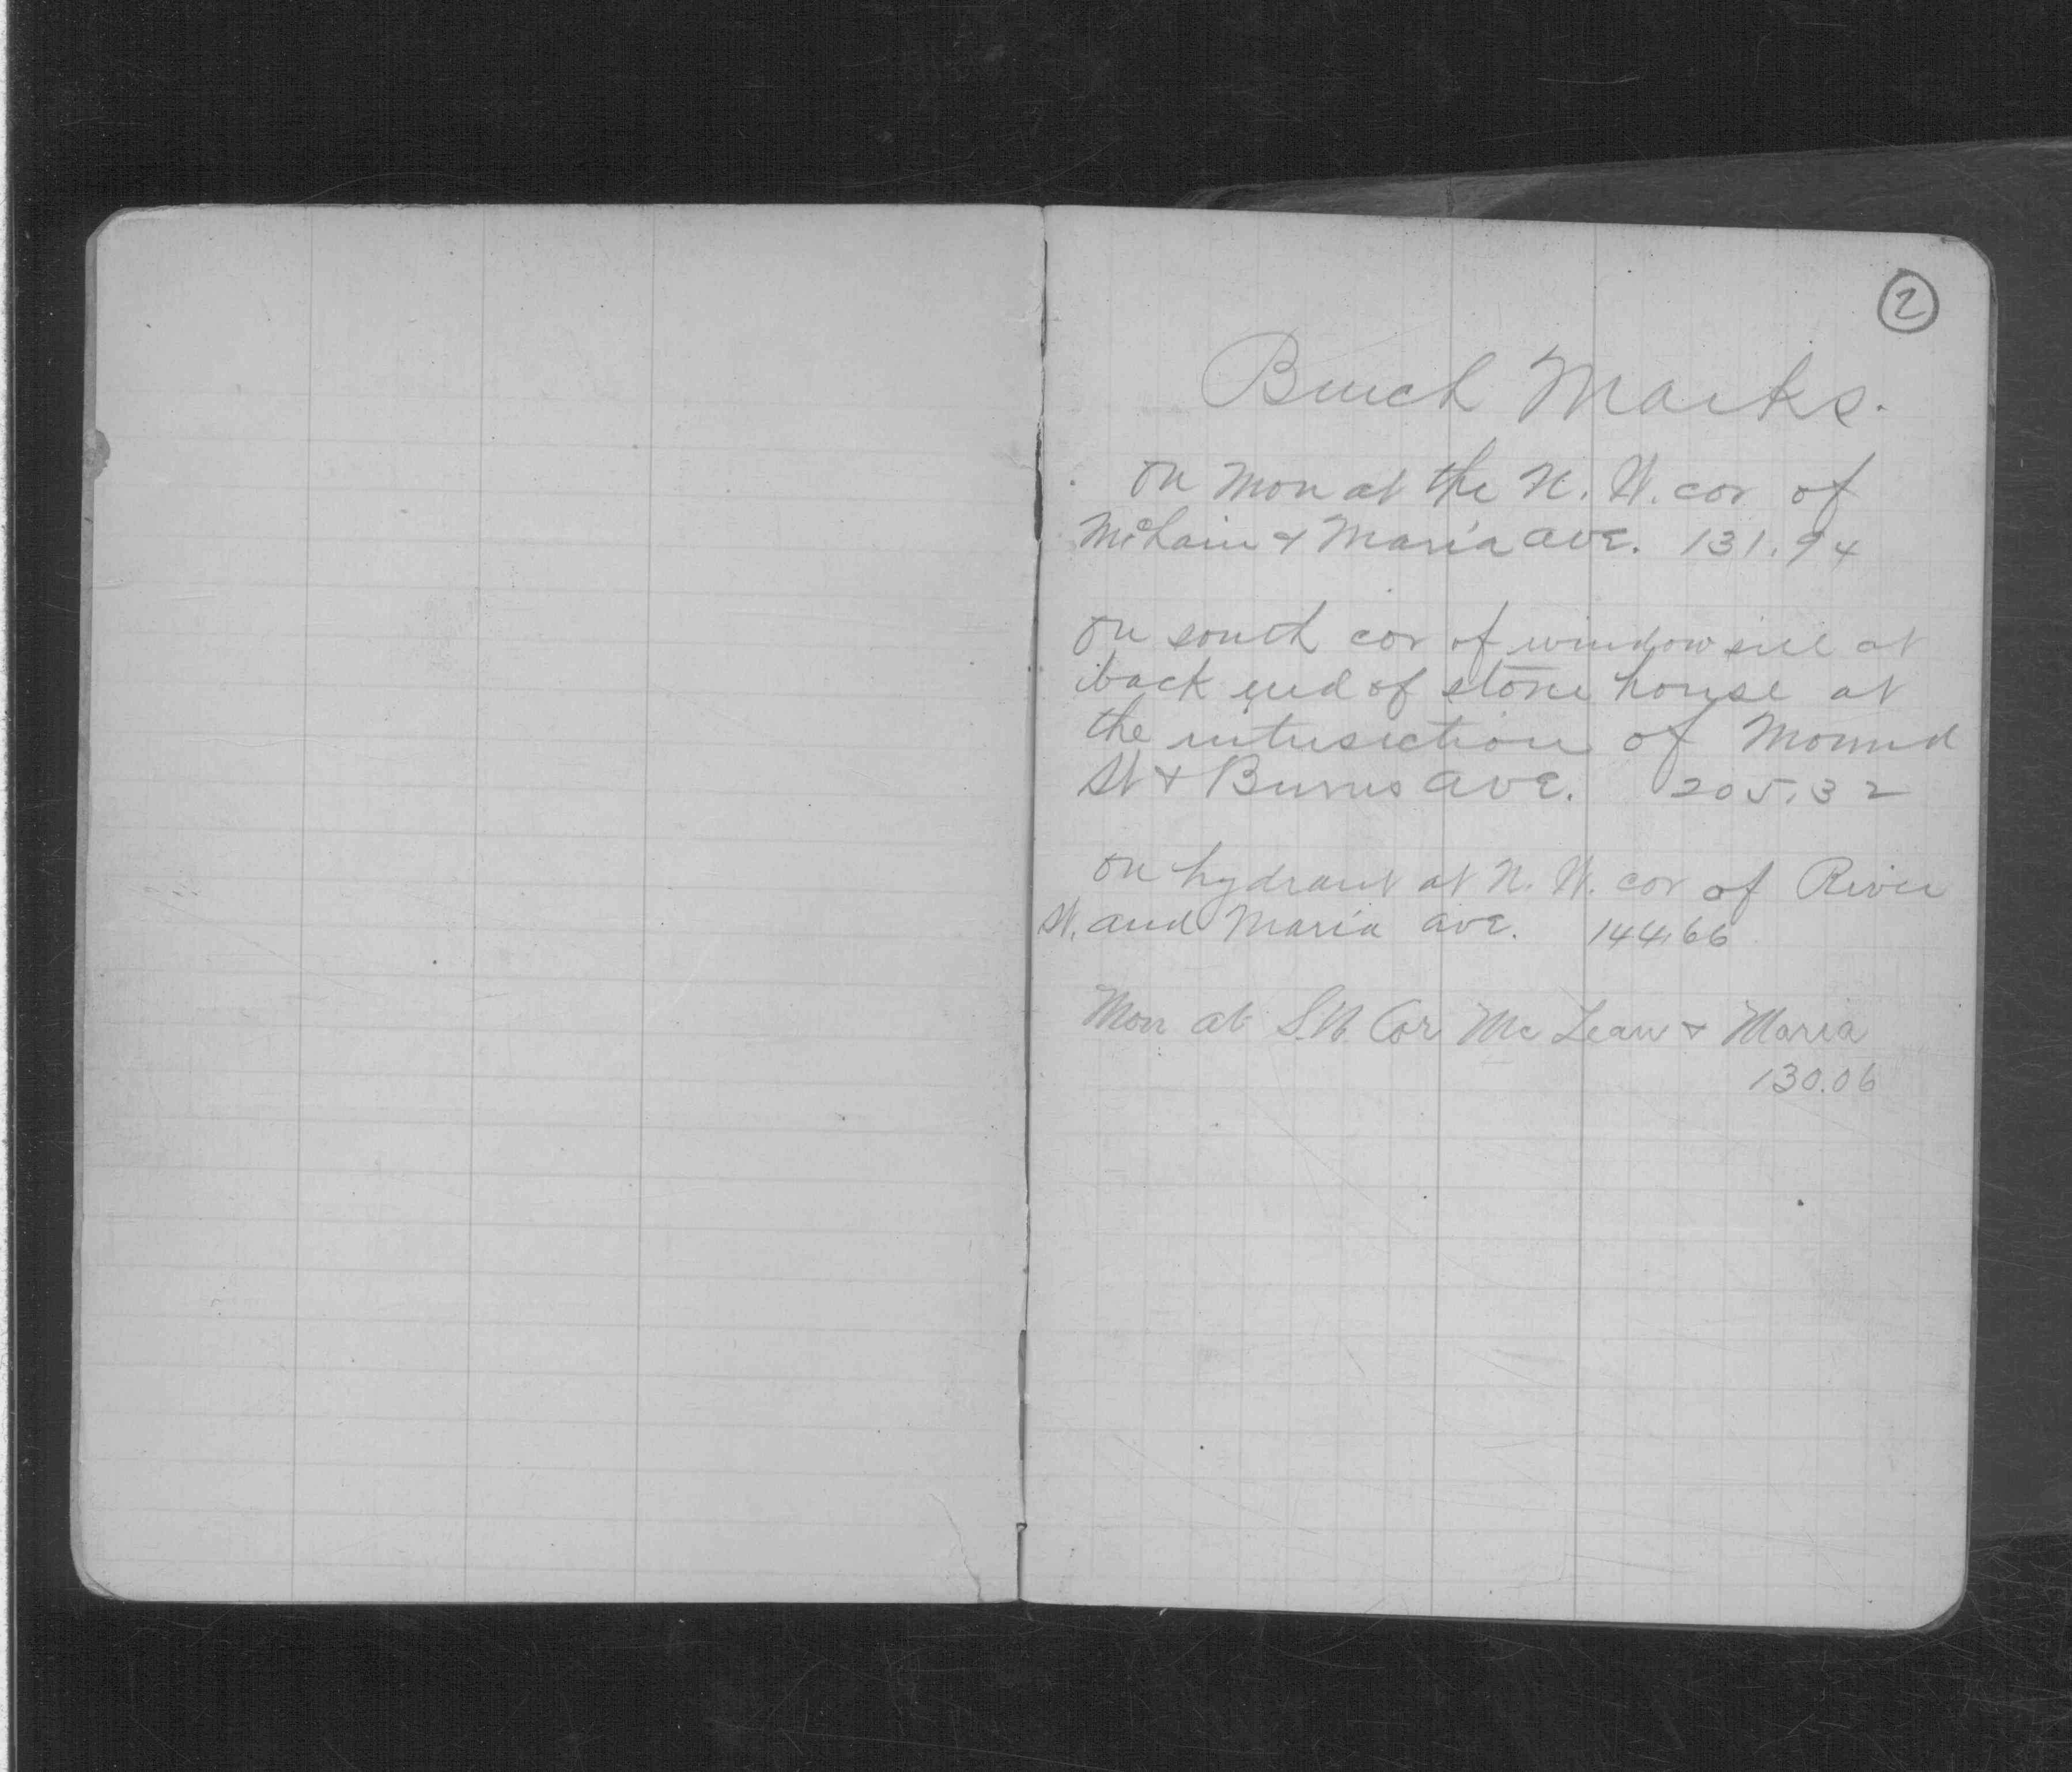 2
Bench Marks.
On Mon at the N. W. cor of
McLain & Maria ave. 131.94
On south cor of window sill at
back end of stone house at
the intersection of Mound
St & Burns ave. 205.32
On hydrant at N. W. cor of River
St. and Maria ave. 144.66
Mon at S.W. Cor Mc Lean & Maria
130.06